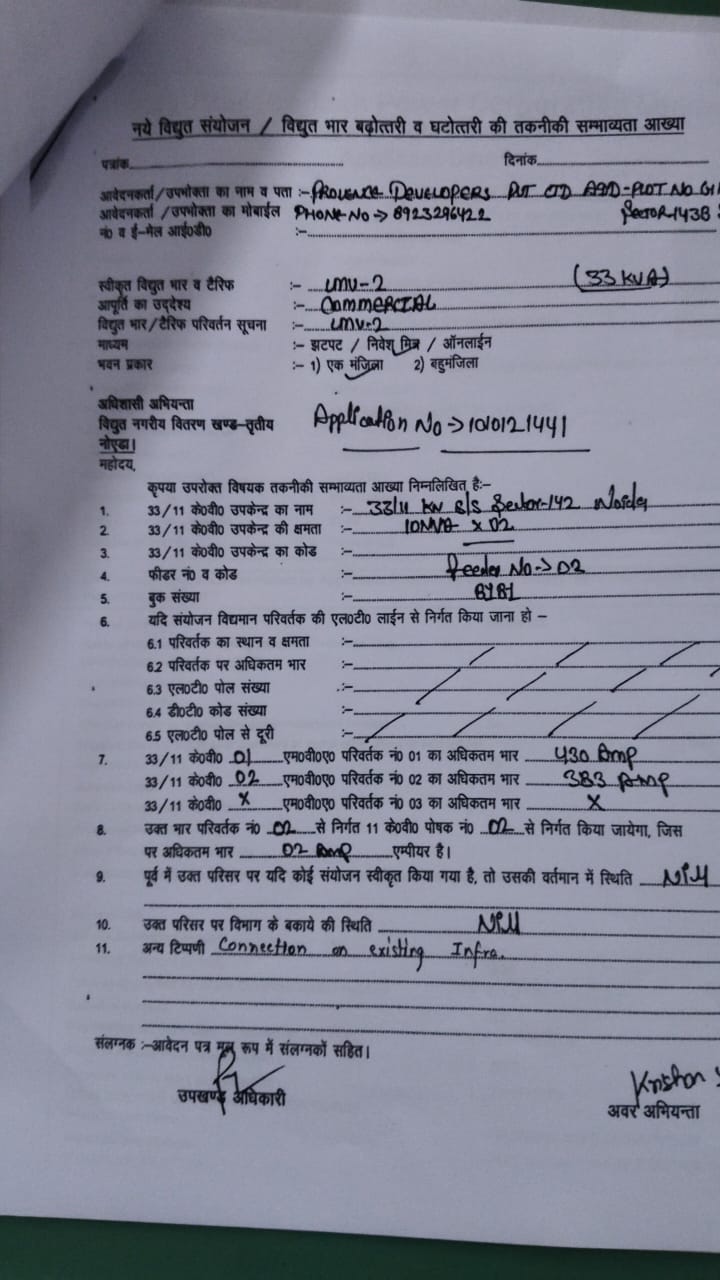 नये विद्युत संयोजन / विद्युत भार बढ़ोत्तरी व घटोत्तरी की तकनीकी सम्भाव्यता आख्या
पत्रांक दिनांक
आवेदनकर्ता/उपभोक्ता का नाम व पता :- DEVELOPERS PVT LTD PLOT NO
आवेदनकर्ता /उपभोक्ता का मोबाईल PHONE NO -> 8923296422 SECTOR-143B
नं0 व ई-मेल आई0डी0 :-
स्वीकृत विद्युत भार व टैरिफ :- LMV-2 (33 KVA)
आपूर्ति का उद्देश्य :- COMMERCIAL
विद्युत भार/टैरिफ परिवर्तन सूचना :- LMV-2
माध्यम :- झटपट / निवेश मित्र / ऑनलाईन
भवन प्रकार :- 1) एक मंजिला 2) बहुमंजिला
अधिशासी अभियन्ता
विद्युत नगरीय वितरण खण्ड-तृतीय Application No -> 1010121441
नोएडा।
महोदय,
कृपया उपरोक्त विषयक तकनीकी सम्भाव्यता आख्या निम्नलिखित है:-
1. 33/11 के0वी0 उपकेन्द्र का नाम :- 33/11 KV S/S Sector-142 Noida
2. 33/11 के0वी0 उपकेन्द्र की क्षमता :- 10MVA X 02
3. 33/11 के0वी0 उपकेन्द्र का कोड :-
4. फीडर नं0 व कोड :- Feeder No -> 02
5. बुक संख्या :-
6. यदि संयोजन विद्यमान परिवर्तक की एल0टी0 लाईन से निर्गत किया जाना हो –
6.1 परिवर्तक का स्थान व क्षमता :-
6.2 परिवर्तक पर अधिकतम भार :-
6.3 एल0टी0 पोल संख्या :-
6.4 डी0टी0 कोड संख्या :-
6.5 एल0टी0 पोल से दूरी :-
7. 33/11 के0वी0 01 एम0वी0ए0 परिवर्तक नं0 01 का अधिकतम भार 430 Amp
33/11 के0वी0 02 एम0वी0ए0 परिवर्तक नं0 02 का अधिकतम भार 383 Amp
33/11 के0वी0 X एम0वी0ए0 परिवर्तक नं0 03 का अधिकतम भार X
8. उक्त भार परिवर्तक नं0 02 से निर्गत 11 के0वी0 पोषक नं0 02 से निर्गत किया जायेगा, जिस
पर अधिकतम भार 02 Amp एम्पीयर है।
9. पूर्व में उक्त परिसर पर यदि कोई संयोजन स्वीकृत किया गया है, तो उसकी वर्तमान में स्थिति Nill
10. उक्त परिसर पर विभाग के बकाये की स्थिति Nill
11. अन्य टिप्पणी Connection on existing Infra.
संलग्नक :-आवेदन पत्र मूल रूप में संलग्नकों सहित।
उपखण्ड अधिकारी
Krishan
अवर अभियन्ता